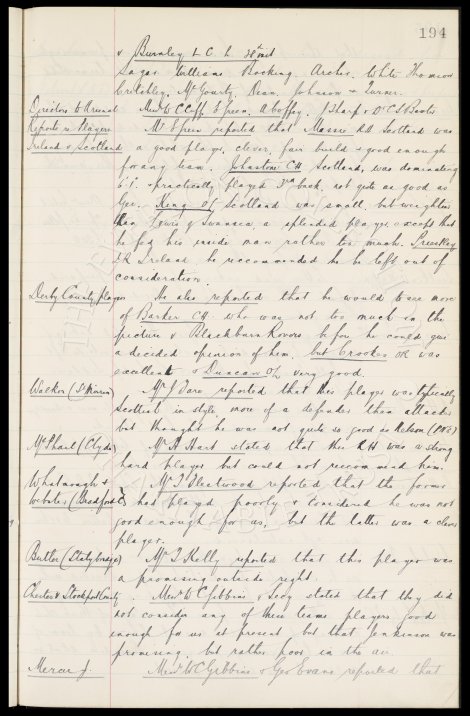 194
v Burnley L C L 28th inst
Sagar Williams Bocking. Archer. White Thomson
Critchley, McGourty Dean. Johnson & Turner.
Directors to Arsenal
Messrs W C Cuff, E Green, A Coffey, J Sharp & Dr C S Baxter
Reports re Players
Ireland v Scotland
Mr E Green reported that Massie RH Scotland was
a good player, clever, fair build & good enough
for any team. Johnstone CH Scotland, was dominating
6' 1". & practically played 3rd back, not quite as good as
Gee. King OL Scotland was small, but weightier
than Lewis of Swansea, a splendid player, except that
he fed his inside man rather too much. Priestley
IR Ireland, he recommended he be left out of
consideration.
Derby County players
He also reported that he would to see more
of Barker CH who was not too much in the
picture v Blackburn Rovers before he could give
a decided opinion of him, but Crooks OR was
excellent & Duncan OL very good.
Walker (St Mirren)
Mr J Dare reported that this player was typically
Scottish in style, more of a defender than attacker
but thought he was not quite so good as Nelson (PNE)
McPhail (Clyde)
Mr H Hart stated that this RH was a strong
hard player but could not recommend him.
Whatmough &
Webster (Bradford C)
Mr T Fleetwood reported that the former
had played poorly & considered he was not
good enough for us, but the latter was a clever
player.
Butler (Stalybridge)
Mr T Kelly reported that this player was
a promising outside right.
Chester v Stockport County
Messrs W C Gibbins & Secy stated that they did
not consider any of these teams players good
enough for us at present but that Jenkinson was
promising but rather poor in the air.
Mercer J.
Messrs W C Gibbins & Geo Evans reported that